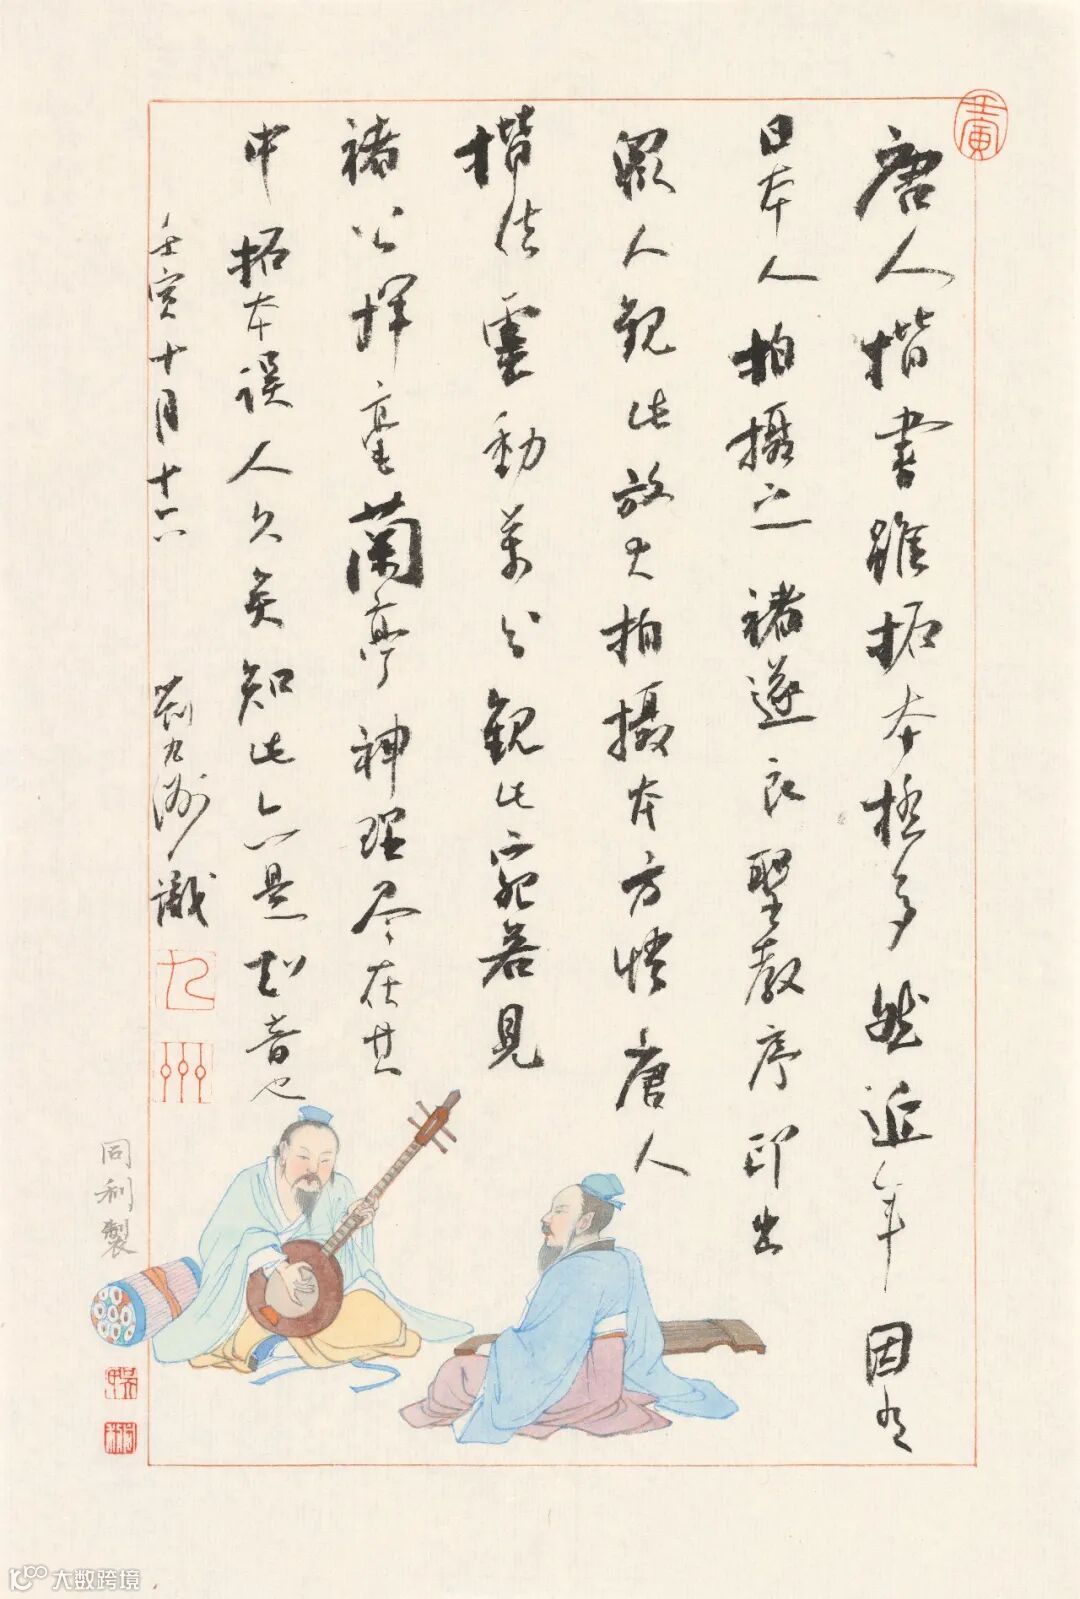 壬寅
唐人楷書雖拓本極多然近年因有
日本人拍攝之褚遂良聖教序印出
眾人觀此放大拍摄本方悟唐人
楷法靈動萬分觀此宛若見
褚公揮毫蘭亭神理尽在其
中拓本误人久矣知此亦是知音也
壬寅十月十六 劉九洲識
九
州
同利製
大数跨境